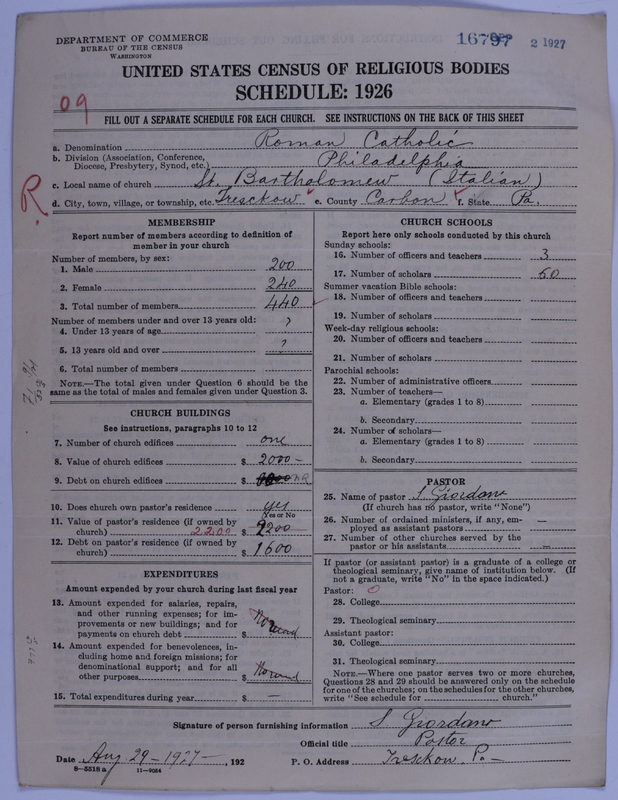 DEPARTMENT OF COMMERCE
BUREAU OF THE CENSUS
WASHINGTON
2 1927
UNITED STATES CENSUS OF RELIGIOUS BODIES
SCHEDULE: 1926
09
FILL OUT A SEPARATE SCHEDULE FOR EACH CHURCH. SEE INSTRUCTIONS ON THE BACK OF THIS SHEET
a. Denomination Roman Catholic
b. Division (Association, Conference, Diocese, Presbytery, Synod, etc.) Philadelphia
c. Local name of church St. Bartholomew (Italian)
R
d. City, town, village, or township, etc. Tresckow e. County Carbon f. State Pa.
MEMBERSHIP
Report number of members according to definition of
member in your church
Number of members, by sex:
1. Male 200
2. Female 240
3. Total number of members 440
Number of members under and over 13 years old:
4. Under 13 years of age ?
5. 13 years old and over ?
6. Total number of members
NOTE.—The total given under Question 6 should be the
same as the total of males and females given under Question 3.
CHURCH BUILDINGS
See instructions, paragraphs 10 to 12
7. Number of church edifices one
8. Value of church edifices $ 2000 —
9. Debt on church edifices $ N.R.
10. Does church own pastor's residence yes
Yes or No
11. Value of pastor's residence (if owned by
church) 2200 $ 2200
12. Debt on pastor's residence (if owned by
church) $ 1600
EXPENDITURES
Amount expended by your church during last fiscal year
13. Amount expended for salaries, repairs,
and other running expenses; for im-
provements or new buildings; and for
payments on church debt $
14. Amount expended for benevolences, in-
cluding home and foreign missions; for
denominational support; and for all
other purposes $
15. Total expenditures during year $ —
CHURCH SCHOOLS
Report here only schools conducted by this church
Sunday schools:
16. Number of officers and teachers 3
17. Number of scholars 60
Summer vacation Bible schools:
18. Number of officers and teachers
19. Number of scholars
Week-day religious schools:
20. Number of officers and teachers
21. Number of scholars
Parochial schools:
22. Number of administrative officers
23. Number of teachers—
a. Elementary (grades 1 to 8)
b. Secondary
24. Number of scholars—
a. Elementary (grades 1 to 8)
b. Secondary
PASTOR
25. Name of pastor S Giordano
(If church has no pastor, write "None")
26. Number of ordained ministers, if any, em-
ployed as assistant pastors —
27. Number of other churches served by the
pastor or his assistants —
If pastor (or assistant pastor) is a graduate of a college or
theological seminary, give name of institution below. (If
not a graduate, write "No" in the space indicated.)
Pastor: O
28. College
29. Theological seminary
Assistant pastor:
30. College
31. Theological seminary
NOTE.—Where one pastor serves two or more churches,
Questions 28 and 29 should be answered only on the schedule
for one of the churches; on the schedules for the other churches,
write "See schedule for church."
Signature of person furnishing information S Giordano
Official title Pastor
Date Aug 29-1927 , 192 P. O. Address Tresckow Pa
8—5518a 11—9054